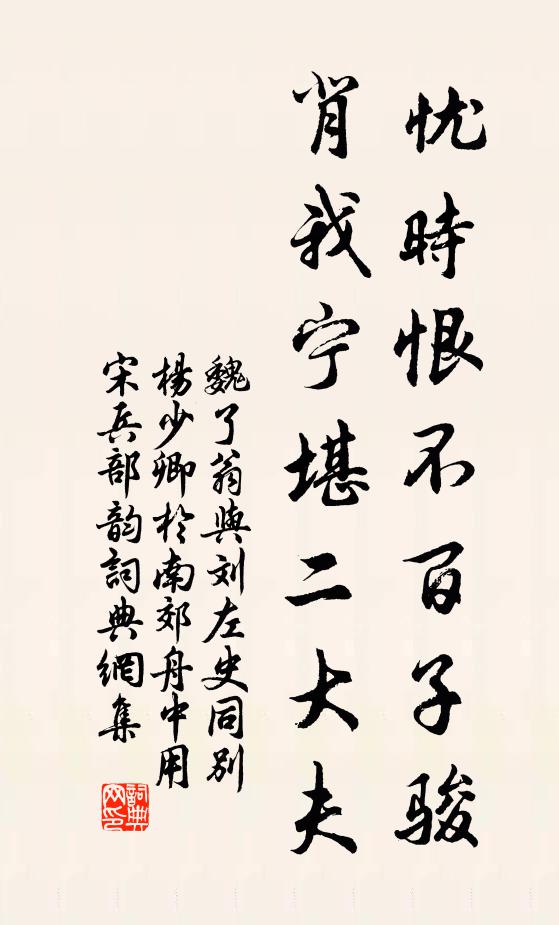 忧時恨不百子骏
肖我宁堪二大夫
魏了翁與刘左史同别
楊少卿於南郊舟中用
宋兵部韵詞典網集
詞典网印